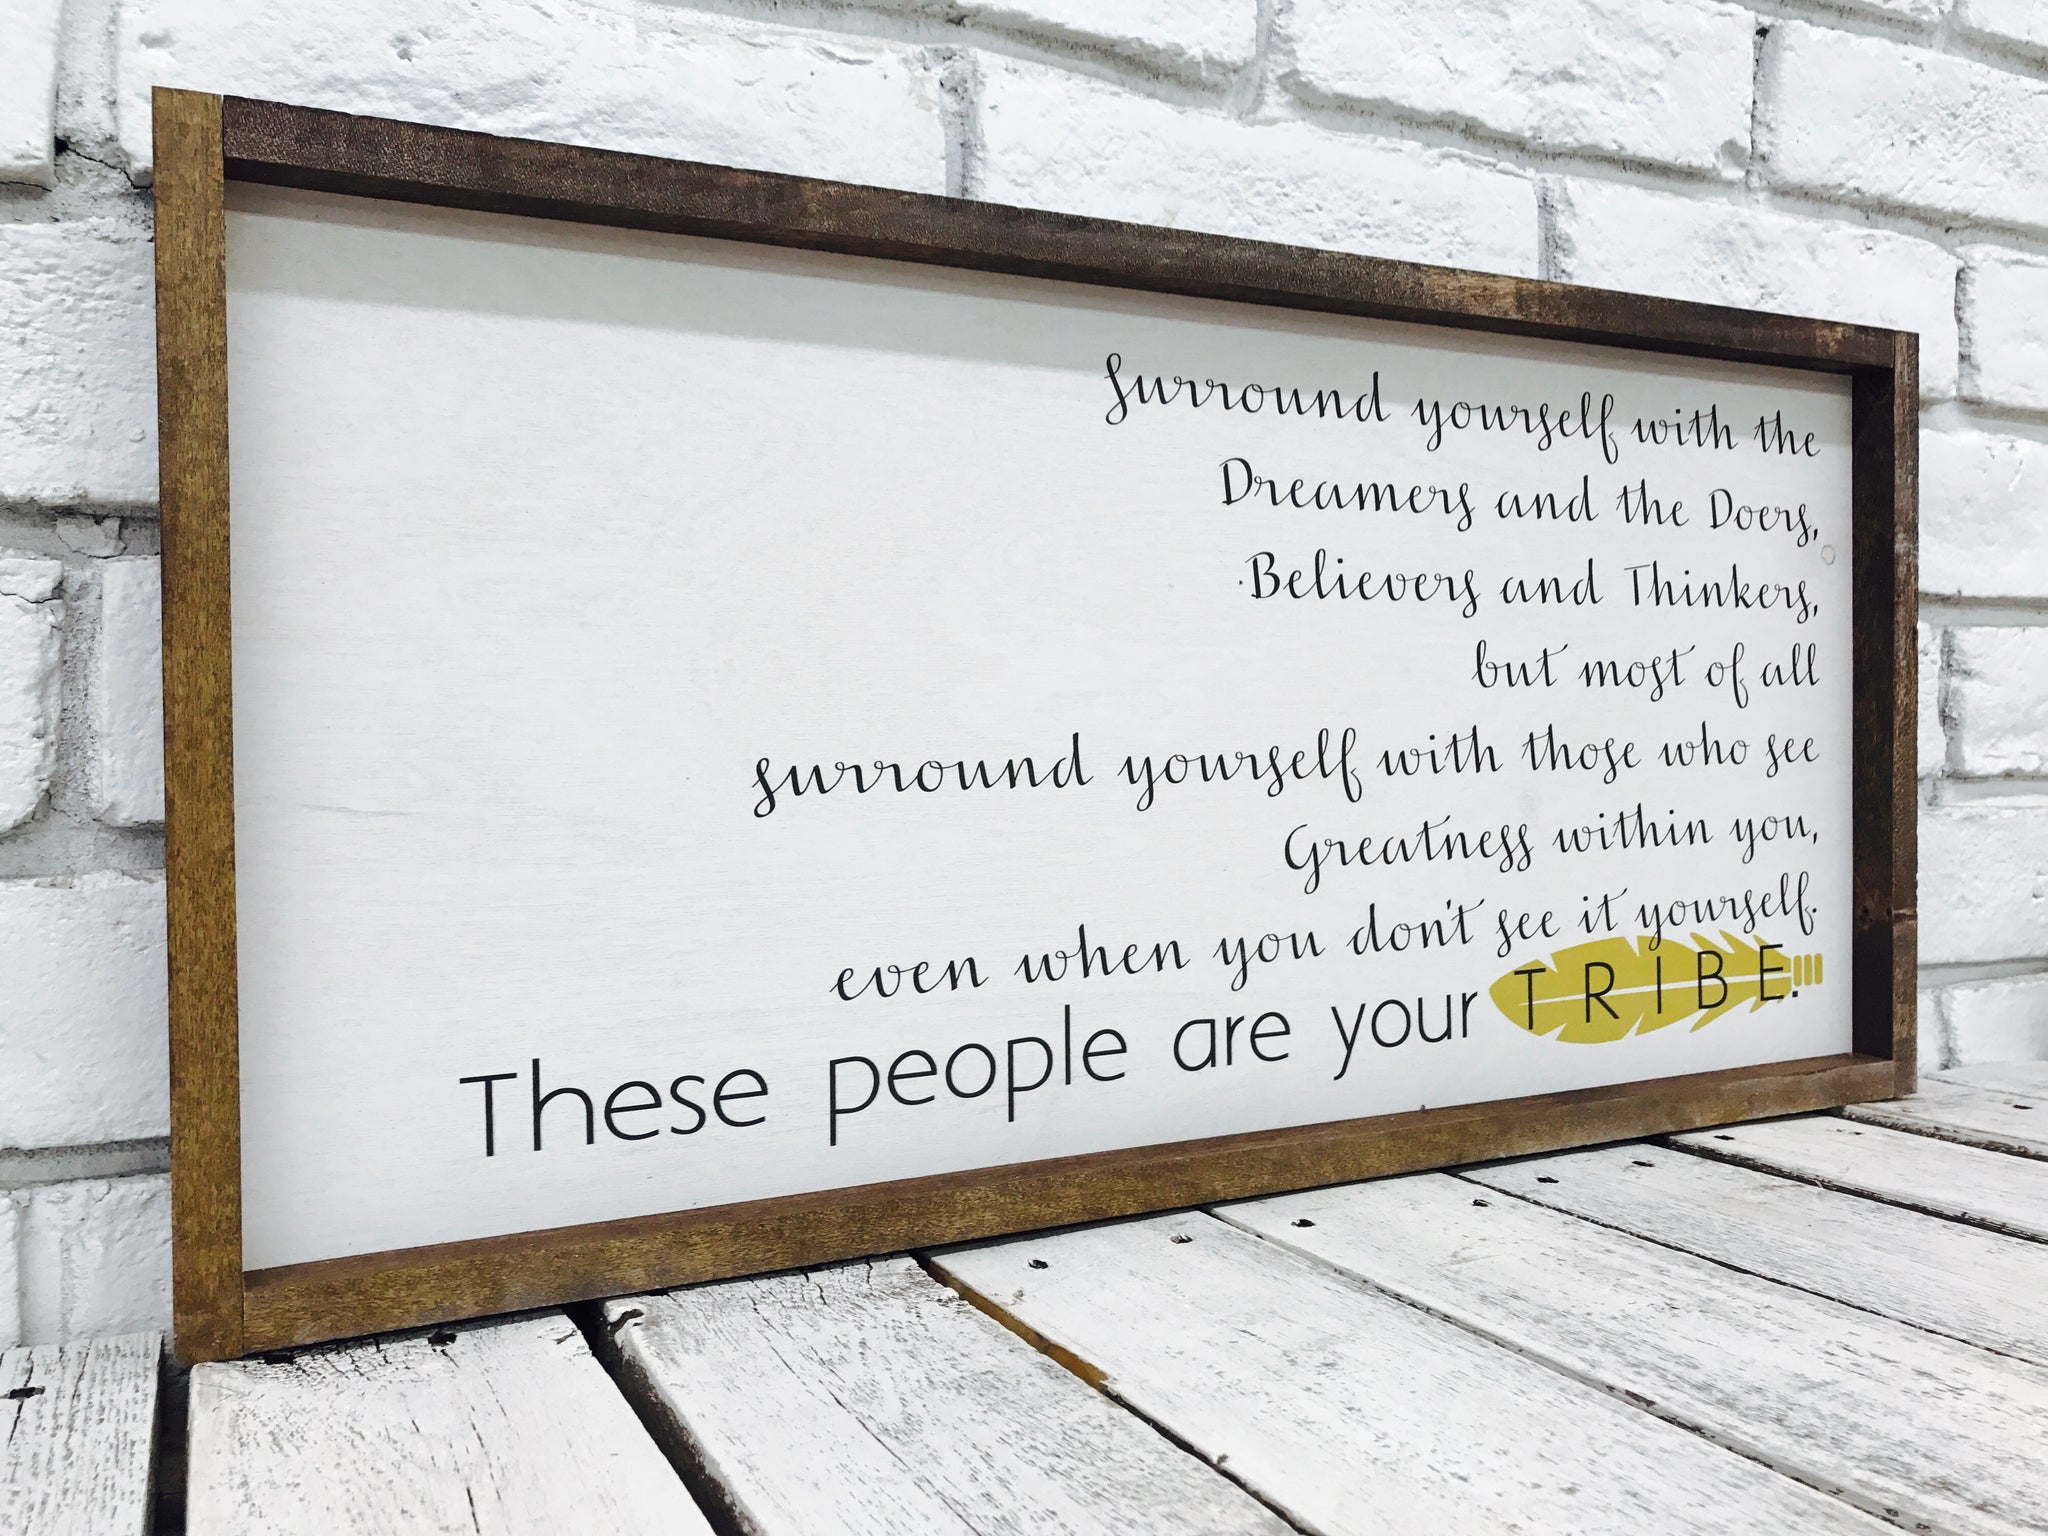 Surround yourself with the
Dreamers and the Doers,
Believers and Thinkers,
but most of all
surround yourself with those who see
Greatness within you,
even when you don't see it yourself.
These people are your TRIBE.